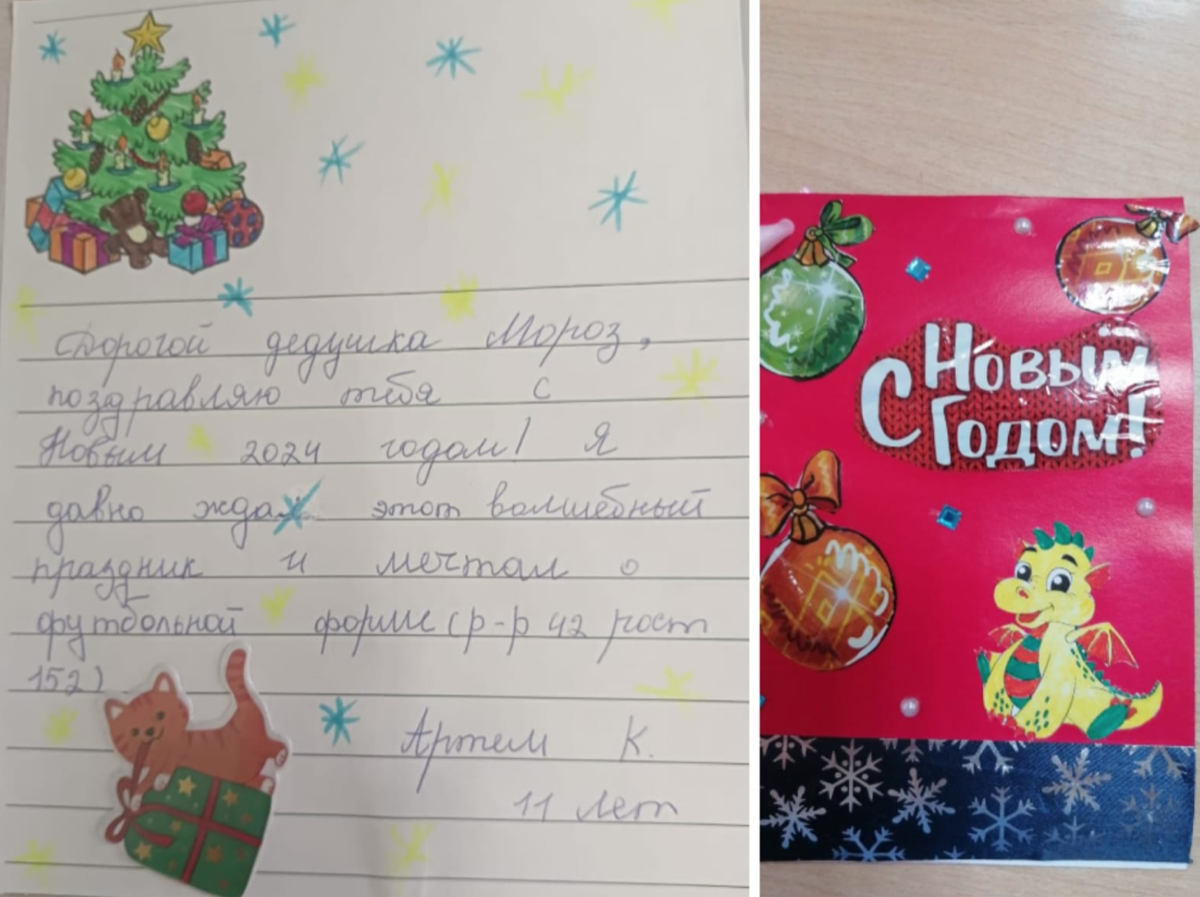 Дорогой дедушка Мороз,
поздравляю тебя с
Новым 2024 годом! Я
давно ждал этот волшебный
праздник и мечтал о
футбольной форме (р-р 42 рост
152)
Артем К.
11 лет
С Новым
Годом!